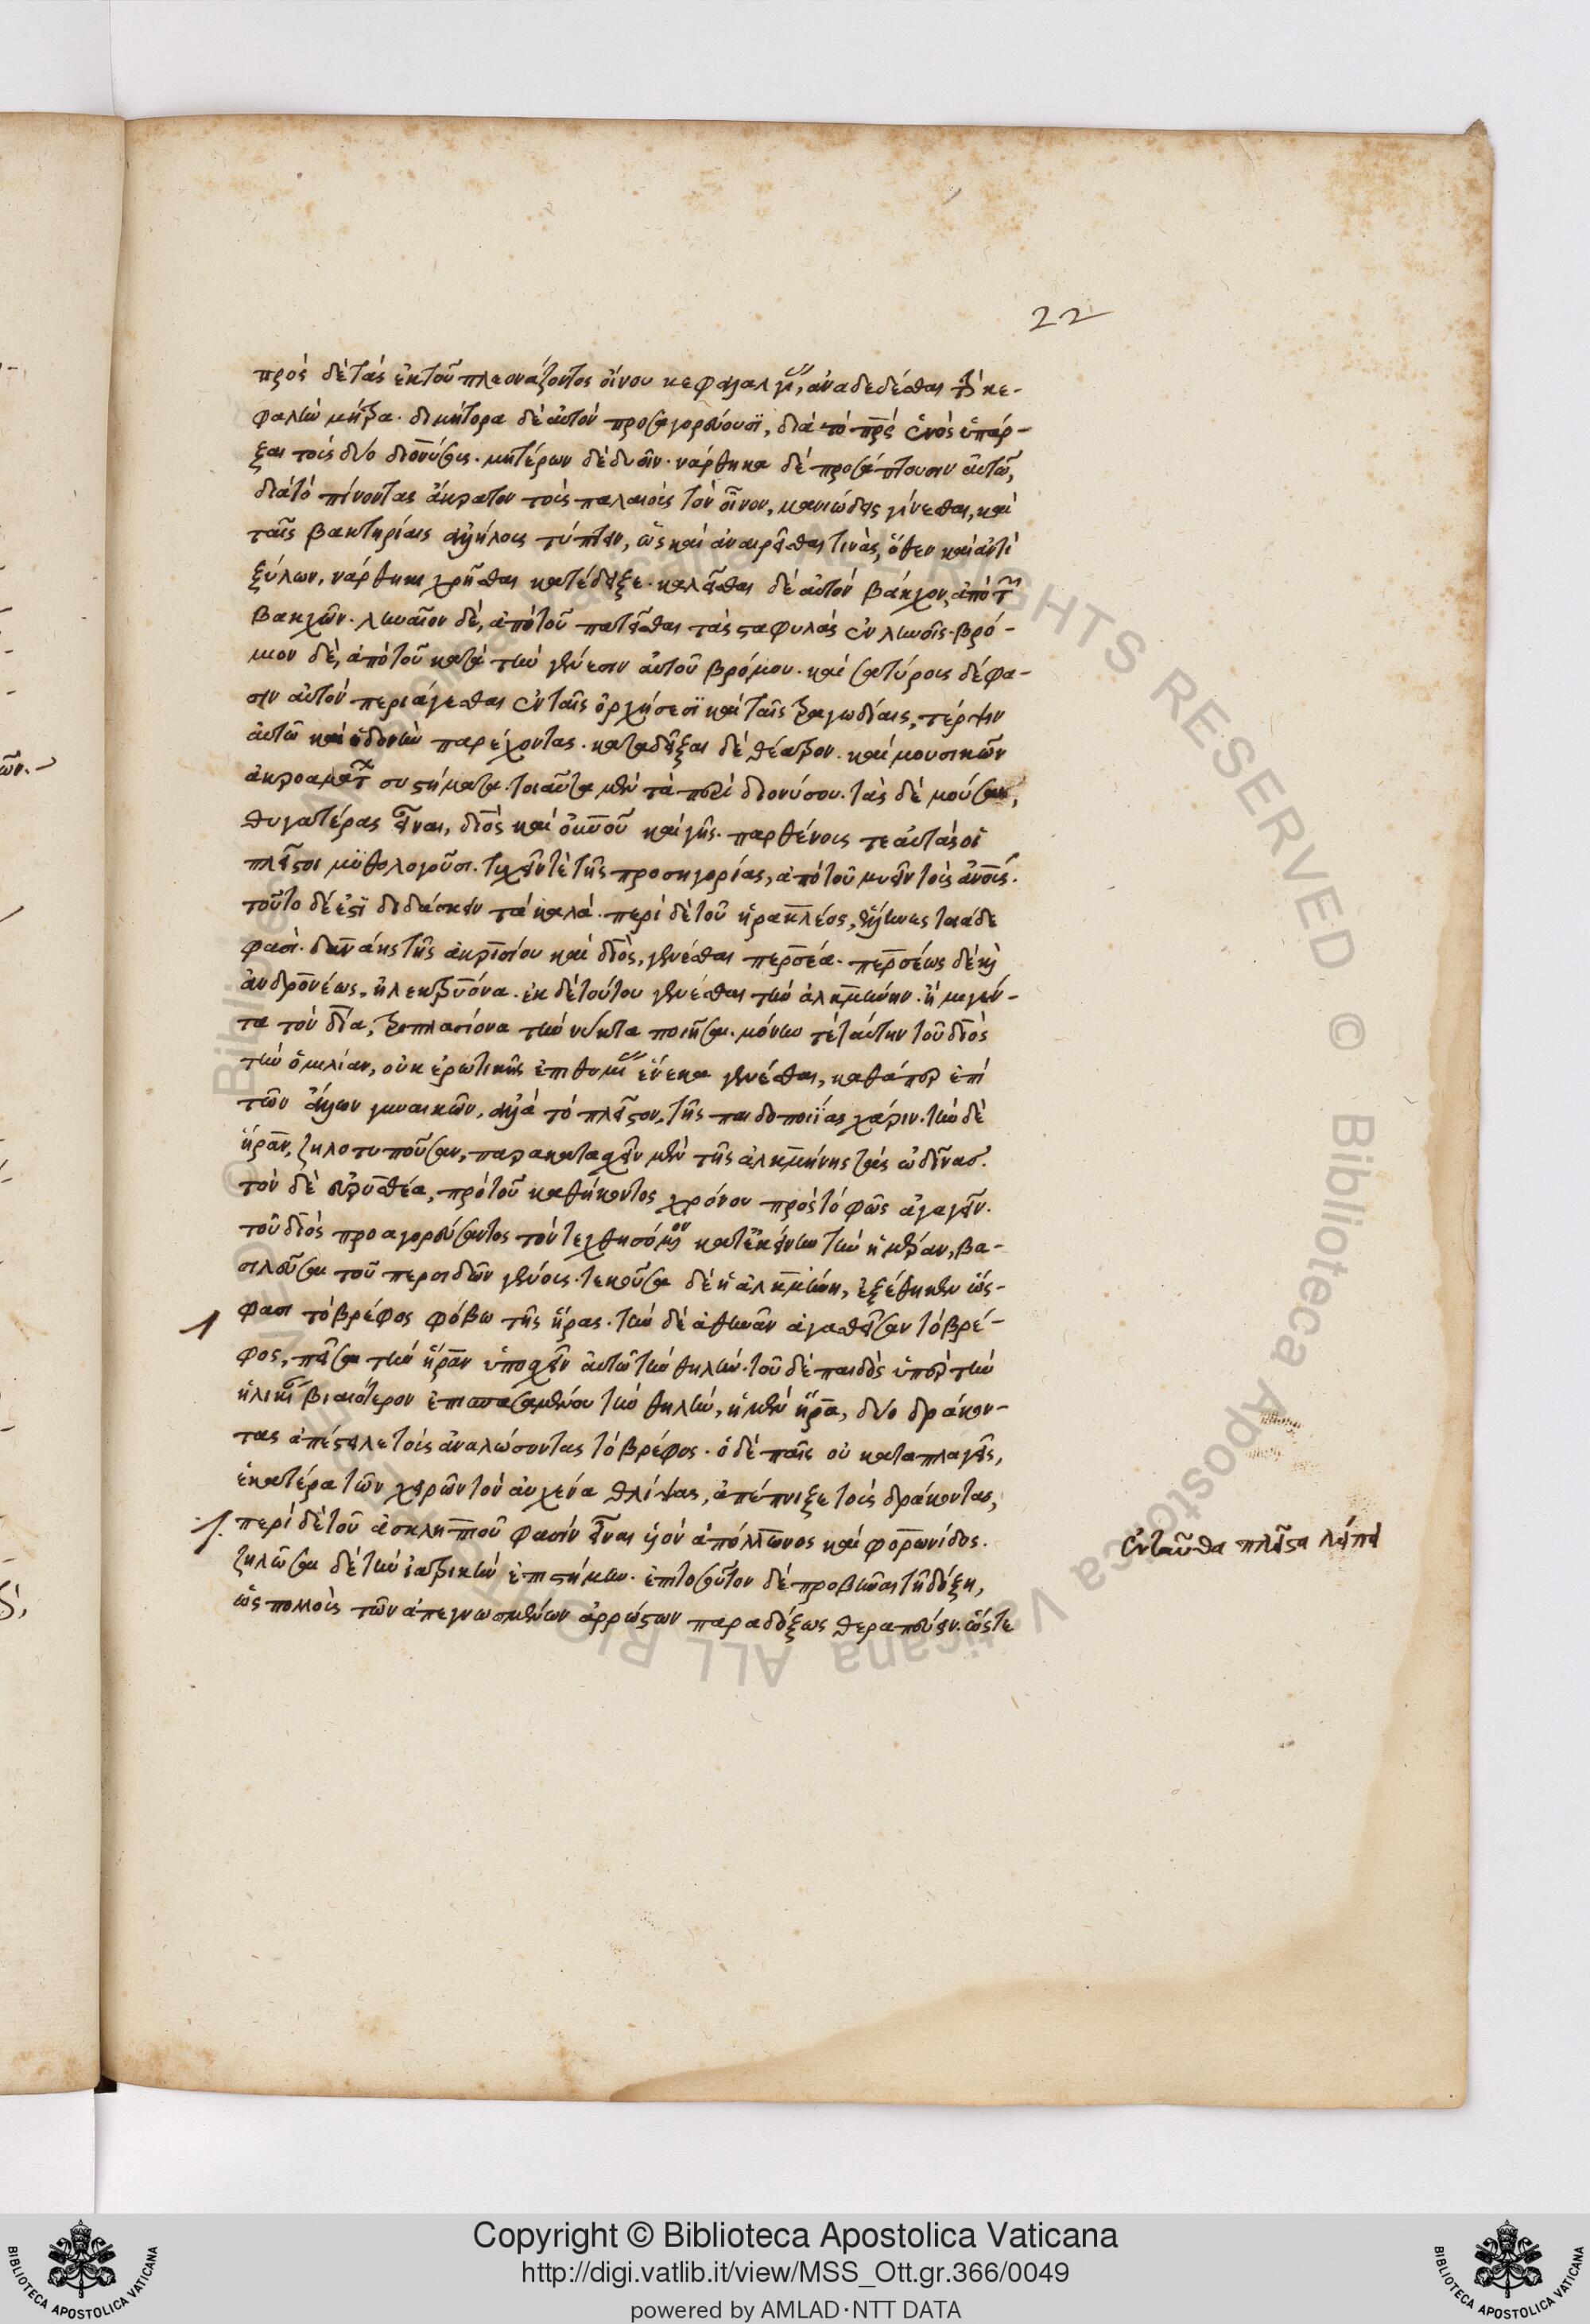 22
πρὸς δὲ τὰς ἐκ τοῦ πλεονάζοντος οἴνου κεφαλαλγίας, ἀναδεδέσθαι τὴν κε-
φαλὴν μήτρα. διμήτορα δὲ αὐτὸν προσαγορεύουσϊ, διὰ τὸ πρς ἑνὸς ὑπάρ-
ξαι τοὺς δύο διονύσους. μητέρων δὲ δυοῖν. νάρθηκα δὲ προσάπτουσιν αὐτῶ,
διὰ τὸ πίνοντας ἄκρατον τοὺς παλαιοὺς τὸν οἶνον, μανιώδεις γίνεσθαι, καὶ
ταῖς βακτηρίαις ἀλλήλους τύπτειν, ὡς καὶ ἀναιρεῖσθαι τινὰς, ὅθεν καὶ ἀντὶ
ξύλων, νάρθηκι χρῆσθαι κατέδειξε. καλεῖσθαι δὲ αὐτὸν βάκχον, ἀπὸ τῶν
βακχῶν. ληναῖον δὲ, ἀπὸ τοῦ πατεῖσθαι τὰς σταφυλὰς ἐν ληνοῖς. βρό-
μιον δὲ, ἀπὸ τοῦ κατὰ τὴν γένεσιν αὐτοῦ βρόμου. καὶ σατύρους δέ φα-
σιν αὐτὸν περιάγεσθαι ἐν ταῖς ὀρχήσεσϊ καὶ ταῖς τραγωδίαις, τέρψιν
αὐτῶ καὶ ἡδονὴν παρέχοντας. καταδεῖξαι δὲ θέατρον. καὶ μουσικῶν
ἀκροαμάτων συστήματα. τοιαῦτα μὲν τὰ περὶ διονύσου. τὰς δὲ μούσας,
θυγατέρας εἶναι, διὸς καὶ οὐνοῦ καὶ γῆς. παρθένους τε αὐτὰς οἱ
πλεῖστοι μϋθολογοῦσι. τυχεῖν τὲ τῆς προσηγορίας, ἀπὸ τοῦ μυεῖν τοὺς ἀνους.
τοῦτο δέ ἐστϊ διδάσκειν τὰ καλὰ. περὶ δὲ τοῦ ἡρακλέος, ἕλληνες τάδε
φασὶ. δανάης τῆς ἀκρισίου καὶ διὸς, γενέσθαι περσέα. περσέως δὲ καὶ
ἀνδρονέως, ἠλεκτρυόνα. ἐκ δὲ τούτου γενέσθαι τὴν ἀλκμήνην. ἧ μιγέν-
τα τὸν δία, τριπλασίονα τὴν νύκτα ποιῆσαι. μόνην τὲ ταύτην τοῦ διὸς
τὴν ὁμιλίαν, οὐκ ἐρωτικῆς ἐπιθυμίας ἕνεκα γενέσθαι, καθάπερ ἐπὶ
τῶν ἄλλων γυναικῶν, ἀλλὰ τὸ πλεῖστον, τῆς παιδοποιΐας χάριν. τὴν δὲ
ἥραν, ζηλοτυποῦσαν, παρακατασχεῖν μὲν τῆς ἀλκμήνης τὰς ὠδῖνασ.
τὸν δὲ εὐρυσθέα, πρὸ τοῦ καθήκοντος χρόνου πρὸς τὸ φῶς ἀγαγεῖν.
τοῦ διὸς προαγορεύσαντος τὸν τεχθησόμενον κατ ἐκείνην τὴν ἡμέραν, βα-
σιλεῦσαι τοῦ περσιδῶν γένους. τεκοῦσα δὲ ἡ ἀλκμήνη, ἐξέθηκεν ὥς-
φασι τὸ βρέφος φόβω τῆς ἥρας. τὴν δὲ ἀθηνᾶν ἀγασθεῖσαν τὸ βρέ-
φος, πεῖσαι τὴν ἥραν ὑποσχεῖν αὐτῶ τὴν θηλήν. τοῦ δὲ παιδὸς ὑπὲρ τὴν
ἡλικίαν βιαιότερον ἐπισπασαμένου τὴν θηλήν, ἡ μὲν ἥρα, δύο δράκον-
τας ἀπέστειλε τοὺς ἀναλώσοντας τὸ βρέφος. ὁ δὲ παῖς οὐ καταπλαγεὶς,
ἑκατέρα τῶν χειρῶν τὸν αὐχένα θλίψας, ἀπέπνιξε τοὺς δράκοντας,
περὶ δὲ τοῦ ἀσκληπιοῦ φασὶν εἶναι υἱὸν ἀπόλλωνος καὶ φορωνίδος.
ζηλῶσαι δὲ τὴν ἰατρικὴν ἐπιστήμην. ἐπὶ τοσοῦτον δὲ προβῆναι τῆ δόξη,
ὡς πολλοὺς τῶν ἀπεγνωσμένων ἀρρώστων παραδόξως θεραπεύειν. ὥστε
ἐνταῦθα πλεῖστα λείπει
Copyright © Biblioteca Apostolica Vaticana
http://digi.vatlib.it/view/MSS_Ott.gr.366/0049
powered by AMLAD·NTT DATA